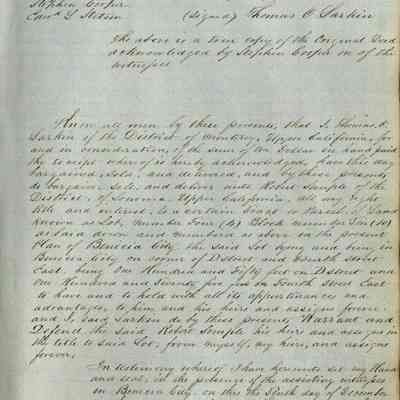 Stephen Cooper
(Signed) Thomas O. Larkin
The above is a true copy of the Original Deed
acknowledged by Stephen Cooper one of the
witnesses
Know all men by these presents, that I, Thomas O.
Larkin of the District of Monterey, Upper California, for
and in consideration, of the sum of One Dollar in hand paid
the receipt whereof is hereby acknowledged, have this day
bargained, Sold, and delivered, and by these presents
do bargain, Sell, and deliver unto Robert Semple of the
District, of Sonoma, Upper California, all my right
title and interest, to a certain board or Parcel of Land
known as Lot, Number Four (4) Block number Ten (10)
as laid down and numbers as above on the present
Plan of Benicia City, the said Lot lying and being in
Benicia City on corner of D street and Fourth Street
East, being One Hundred and Fifty feet on D street and
One Hundred and Twenty five feet on Fourth Street East
to have and to hold with all its appurtinances and
advantages, to him and his heirs and assigns forever,
and I, said Larkin do by these presents Warrant and
Defend the said Robert Semple his heirs and assigns in
the title to said Lot, from myself, my heirs, and assigns
forever,
In testimony whereof I have hereunto set my Hand
and seal, in the presence of the assisting witnesses
in Benicia City, on this the Sixth day of December